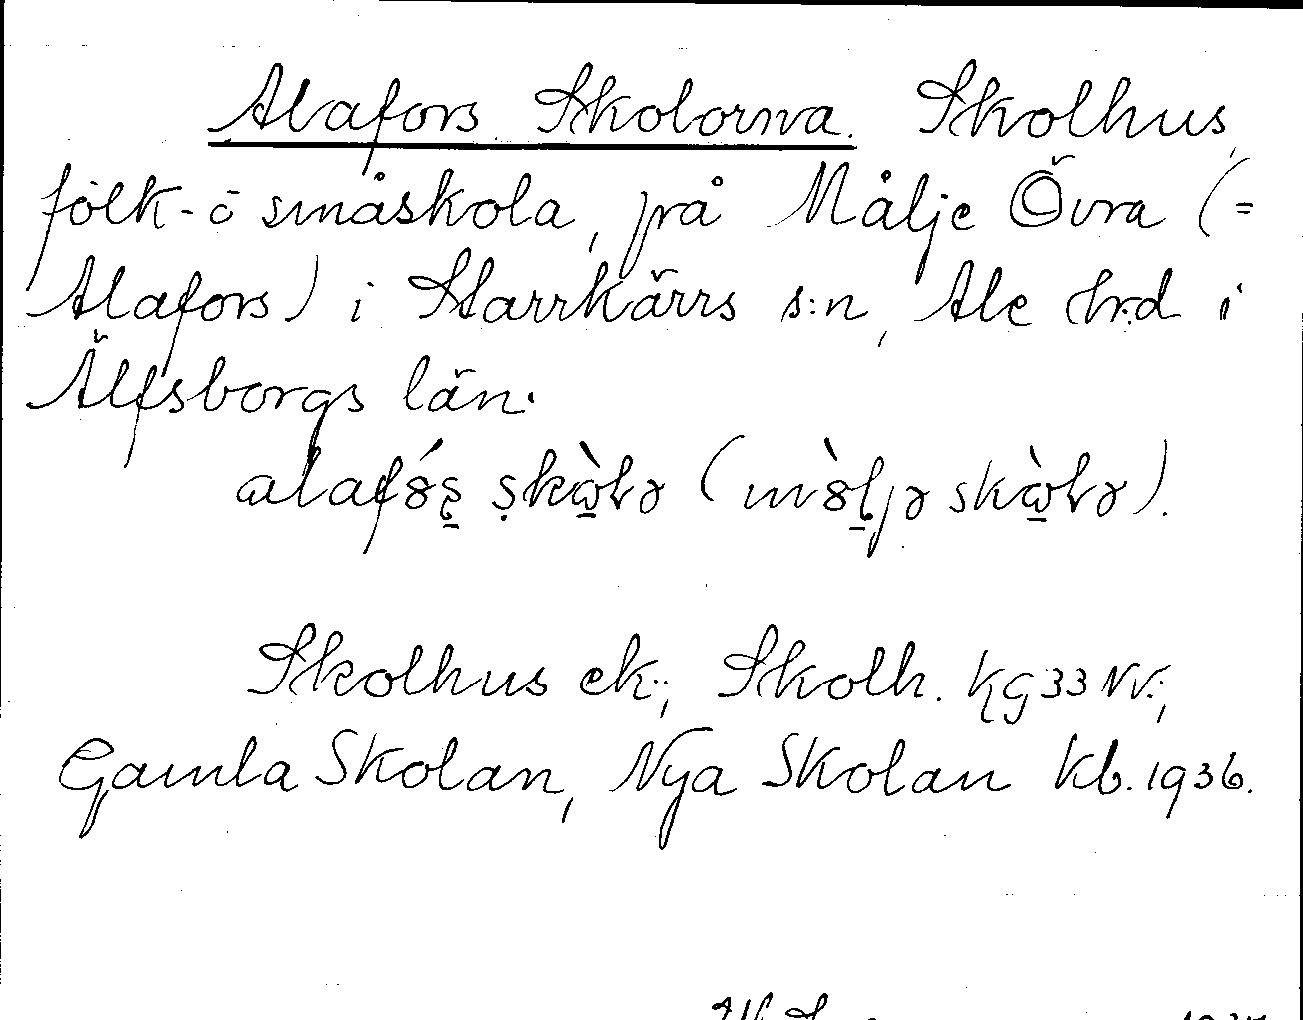 Alafors Skolorna. Skolhus,
folk- o småskola, på Målje Övra (=
Alafors) i Starrkärrs s:n, Ale hrd i
Älfsborgs län.
alafó̤s skὼlə (mòljə skὼlə).
Skolhus ek.; Skolh. KG 33 NV.;
Gamla Skolan, Nya Skolan Kb. 1936.